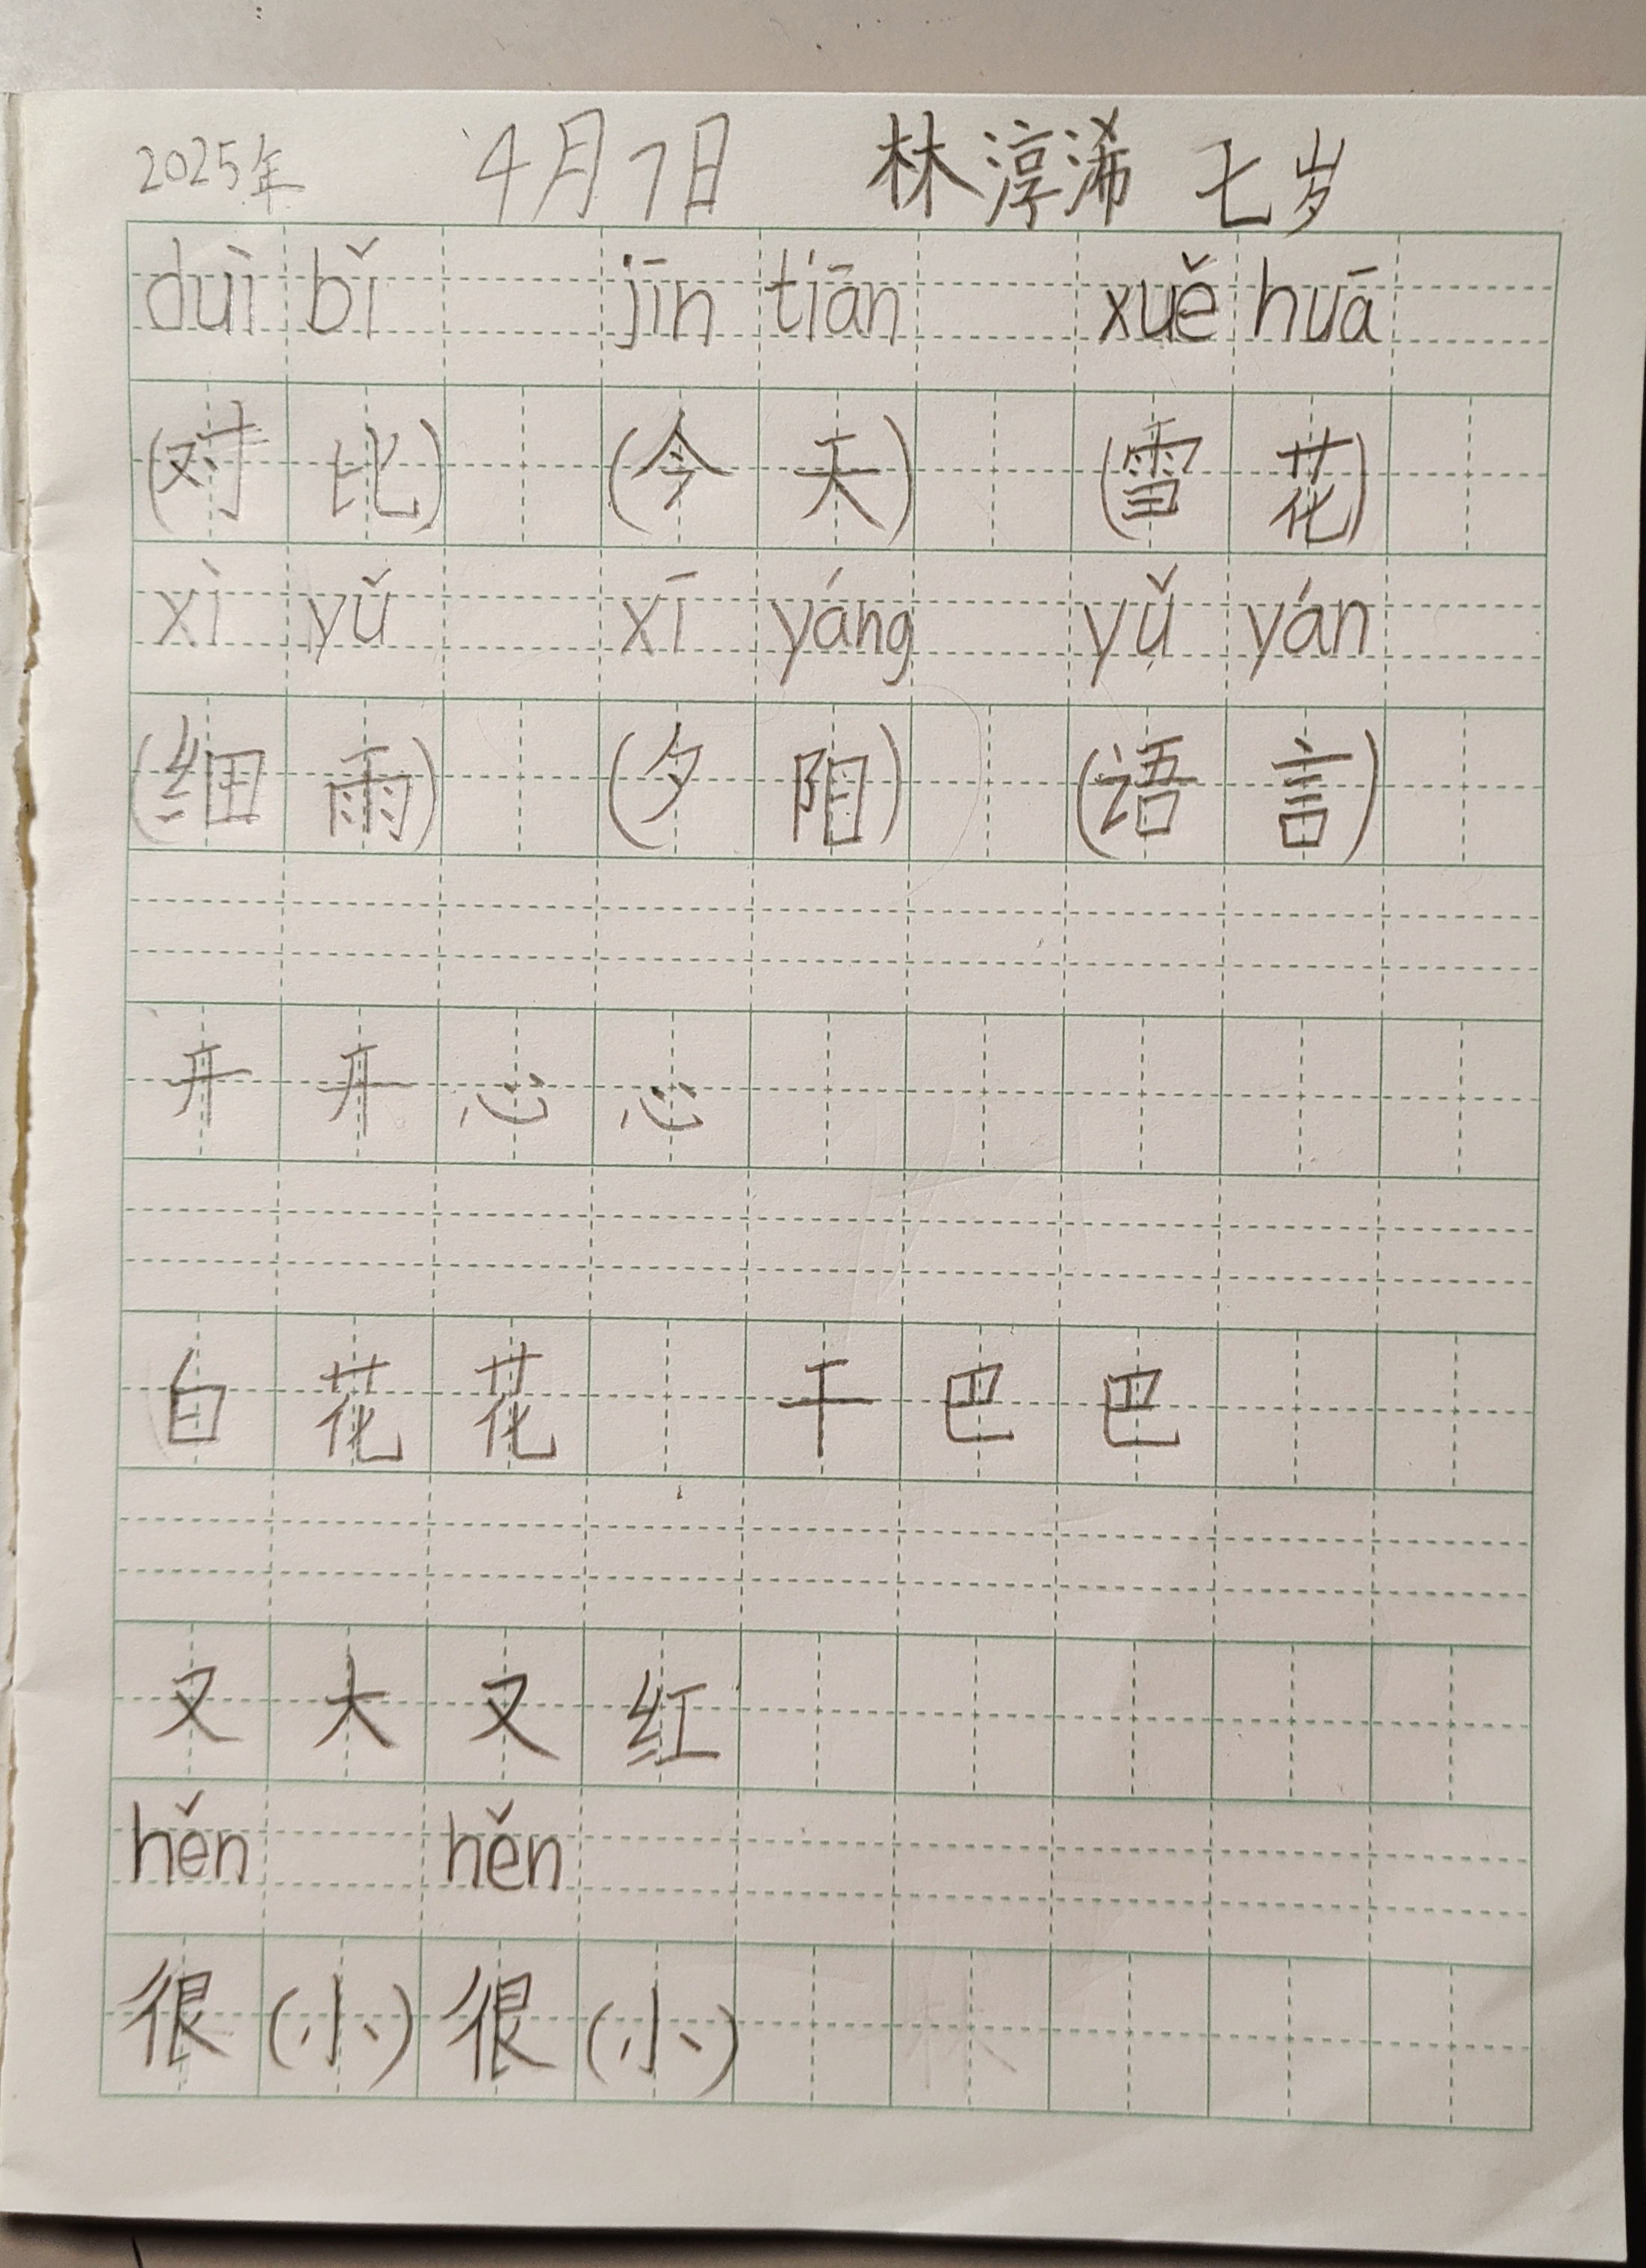 2025年 4月7日 林淳浠 七岁
duì bǐ jīn tiān xuě huā
(对比) (今天) (雪花)
xì yǔ xī yáng yǔ yán
(细雨) (夕阳) (语言)
开开心心
白花花 干巴巴
又大又红
hěn hěn
很(小)很(小)